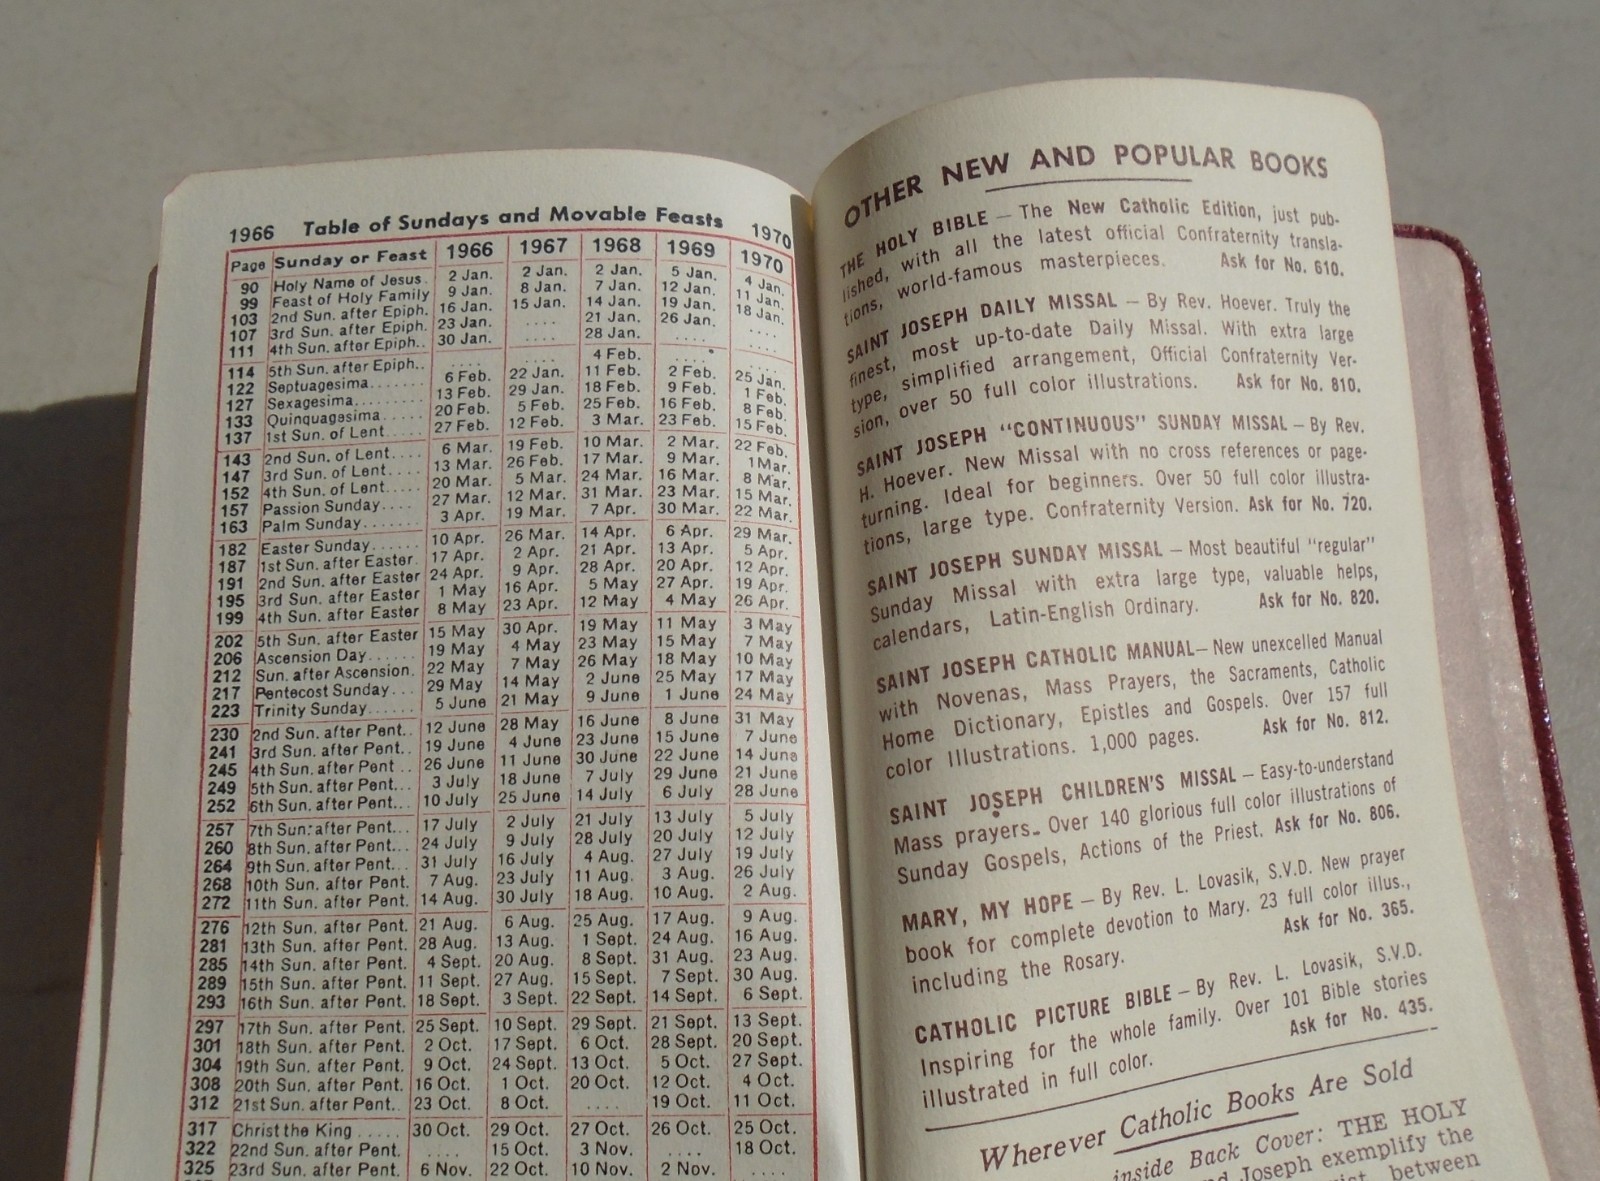 1966 Table of Sundays and Movable Feasts 1970
Page Sunday or Feast 1966 1967 1968 1969 1970
90 Holy Name of Jesus. 2 Jan. 2 Jan. 2 Jan. 5 Jan. 4 Jan.
99 Feast of Holy Family 9 Jan. 8 Jan. 7 Jan. 12 Jan. 11 Jan.
103 2nd Sun. after Epiph. 16 Jan. 15 Jan. 14 Jan. 19 Jan. 18 Jan.
107 3rd Sun. after Epiph. 23 Jan. .... 21 Jan. 26 Jan. ....
111 4th Sun. after Epiph.. 30 Jan. .... 28 Jan. .... ....
114 5th Sun. after Epiph.. .... .... 4 Feb. .... ....
122 Septuagesima....... 6 Feb. 22 Jan. 11 Feb. 2 Feb. 25 Jan.
127 Sexagesima......... 13 Feb. 29 Jan. 18 Feb. 9 Feb. 1 Feb.
133 Quinquagesima..... 20 Feb. 5 Feb. 25 Feb. 16 Feb. 8 Feb.
137 1st Sun. of Lent..... 27 Feb. 12 Feb. 3 Mar. 23 Feb. 15 Feb.
143 2nd Sun. of Lent.... 6 Mar. 19 Feb. 10 Mar. 2 Mar. 22 Feb.
147 3rd Sun. of Lent.... 13 Mar. 26 Feb. 17 Mar. 9 Mar. 1 Mar.
152 4th Sun. of Lent..... 20 Mar. 5 Mar. 24 Mar. 16 Mar. 8 Mar.
157 Passion Sunday.... 27 Mar. 12 Mar. 31 Mar. 23 Mar. 15 Mar.
163 Palm Sunday....... 3 Apr. 19 Mar. 7 Apr. 30 Mar. 22 Mar.
182 Easter Sunday...... 10 Apr. 26 Mar. 14 Apr. 6 Apr. 29 Mar.
187 1st Sun. after Easter. 17 Apr. 2 Apr. 21 Apr. 13 Apr. 5 Apr.
191 2nd Sun. after Easter 24 Apr. 9 Apr. 28 Apr. 20 Apr. 12 Apr.
195 3rd Sun. after Easter 1 May 16 Apr. 5 May 27 Apr. 19 Apr.
199 4th Sun. after Easter 8 May 23 Apr. 12 May 4 May 26 Apr.
202 5th Sun. after Easter 15 May 30 Apr. 19 May 11 May 3 May
206 Ascension Day...... 19 May 4 May 23 May 15 May 7 May
212 Sun. after Ascension. 22 May 7 May 26 May 18 May 10 May
217 Pentecost Sunday... 29 May 14 May 2 June 25 May 17 May
223 Trinity Sunday...... 5 June 21 May 9 June 1 June 24 May
230 2nd Sun. after Pent.. 12 June 28 May 16 June 8 June 31 May
241 3rd Sun. after Pent.. 19 June 4 June 23 June 15 June 7 June
245 4th Sun. after Pent .. 26 June 11 June 30 June 22 June 14 June
249 5th Sun. after Pent... 3 July 18 June 7 July 29 June 21 June
252 6th Sun. after Pent... 10 July 25 June 14 July 6 July 28 June
257 7th Sun. after Pent... 17 July 2 July 21 July 13 July 5 July
260 8th Sun. after Pent... 24 July 9 July 28 July 20 July 12 July
264 9th Sun. after Pent... 31 July 16 July 4 Aug. 27 July 19 July
268 10th Sun. after Pent. 7 Aug. 23 July 11 Aug. 3 Aug. 26 July
272 11th Sun. after Pent. 14 Aug. 30 July 18 Aug. 10 Aug. 2 Aug.
276 12th Sun. after Pent. 21 Aug. 6 Aug. 25 Aug. 17 Aug. 9 Aug.
281 13th Sun. after Pent. 28 Aug. 13 Aug. 1 Sept. 24 Aug. 16 Aug.
285 14th Sun. after Pent. 4 Sept. 20 Aug. 8 Sept. 31 Aug. 23 Aug.
289 15th Sun. after Pent. 11 Sept. 27 Aug. 15 Sept. 7 Sept. 30 Aug.
293 16th Sun. after Pent. 18 Sept. 3 Sept. 22 Sept. 14 Sept. 6 Sept.
297 17th Sun. after Pent. 25 Sept. 10 Sept. 29 Sept. 21 Sept. 13 Sept.
301 18th Sun. after Pent. 2 Oct. 17 Sept. 6 Oct. 28 Sept. 20 Sept.
304 19th Sun. after Pent. 9 Oct. 24 Sept. 13 Oct. 5 Oct. 27 Sept.
308 20th Sun. after Pent. 16 Oct. 1 Oct. 20 Oct. 12 Oct. 4 Oct.
312 21st Sun. after Pent.. 23 Oct. 8 Oct. .... 19 Oct. 11 Oct.
317 Christ the King ..... 30 Oct. 29 Oct. 27 Oct. 26 Oct. 25 Oct.
322 22nd Sun. after Pent. .... 15 Oct. 3 Nov. .... 18 Oct.
325 23rd Sun. after Pent. 6 Nov. 22 Oct. 10 Nov. 2 Nov. ....
OTHER NEW AND POPULAR BOOKS
THE HOLY BIBLE — The New Catholic Edition, just pub-
lished, with all the latest official Confraternity transla-
tions, world-famous masterpieces. Ask for No. 610.
SAINT JOSEPH DAILY MISSAL — By Rev. Hoever. Truly the
finest, most up-to-date Daily Missal. With extra large
type, simplified arrangement, Official Confraternity Ver-
sion, over 50 full color illustrations. Ask for No. 810.
SAINT JOSEPH "CONTINUOUS" SUNDAY MISSAL — By Rev.
H. Hoever. New Missal with no cross references or page-
turning. Ideal for beginners. Over 50 full color illustra-
tions, large type. Confraternity Version. Ask for No. 720.
SAINT JOSEPH SUNDAY MISSAL — Most beautiful "regular"
Sunday Missal with extra large type, valuable helps,
calendars, Latin-English Ordinary. Ask for No. 820.
SAINT JOSEPH CATHOLIC MANUAL— New unexcelled Manual
with Novenas, Mass Prayers, the Sacraments, Catholic
Home Dictionary, Epistles and Gospels. Over 157 full
color Illustrations. 1,000 pages. Ask for No. 812.
SAINT JOSEPH CHILDREN'S MISSAL — Easy-to-understand
Mass prayers. Over 140 glorious full color illustrations of
Sunday Gospels, Actions of the Priest. Ask for No. 806.
MARY, MY HOPE — By Rev. L. Lovasik, S.V.D. New prayer
book for complete devotion to Mary. 23 full color illus.,
including the Rosary. Ask for No. 365.
CATHOLIC PICTURE BIBLE — By Rev. L. Lovasik, S.V.D.
Inspiring for the whole family. Over 101 Bible stories
illustrated in full color. Ask for No. 435.
Wherever Catholic Books Are Sold
inside Back Cover: THE HOLY
Joseph exemplify the
between